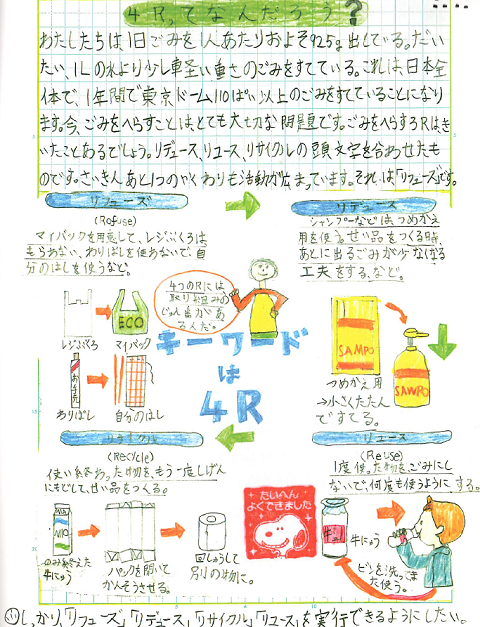 4Rってなんだろう?
わたしたちは、1日ごみを1人あたりおよそ925g出している。だい
たい、1Lの水より少し軽い重さのごみをすてている。これは、日本全
体で、1年間で東京ドーム110ぱい以上のごみをすてていることになり
ます。今、ごみをへらすことは、とても大切な問題です。ごみをへらす3Rはき
いたことあるでしょう。リデュース、リユース、リサイクルの頭文字を合わせたも
のです。さいきんあと1つのやくわりも活動が広まっています。それは「リフューズ」です。
リフューズ
(Refuse)
マイバックを用意して、レジぶくろは
もらわない、わりばしを使わないで、自
分のはしを使うなど。
レジぶくろ
ECO
マイバック
わりばし
自分のはし
4つのRには
取り組みの
じゅん番があ
るんだ。
キーワード
は
4R
リデュース
シャンプーなどはつめかえ
用を使う。せい品をつくる時、
あとに出るごみが少なくなる
工夫をする、など。
SAMPO
SAMPO
つめかえ用
→小さくたたん
ですてる。
リユース
(Reuse)
1度使った物を、ごみにし
ないで、何度も使うようにする。
牛にゅう
ビンを洗ってま
た使う。
リサイクル
(Recycle)
使い終わった物を、もう一度しげん
にもどして、せい品をつくる。
のみ終えた
牛にゅう
パックを開いて
かんそうさせる。
回しゅうして
別の物に。
たいへん
よくできました
しっかり、「リフューズ」「リデュース」「リサイクル」「リユース」を実行できるようにしたい。